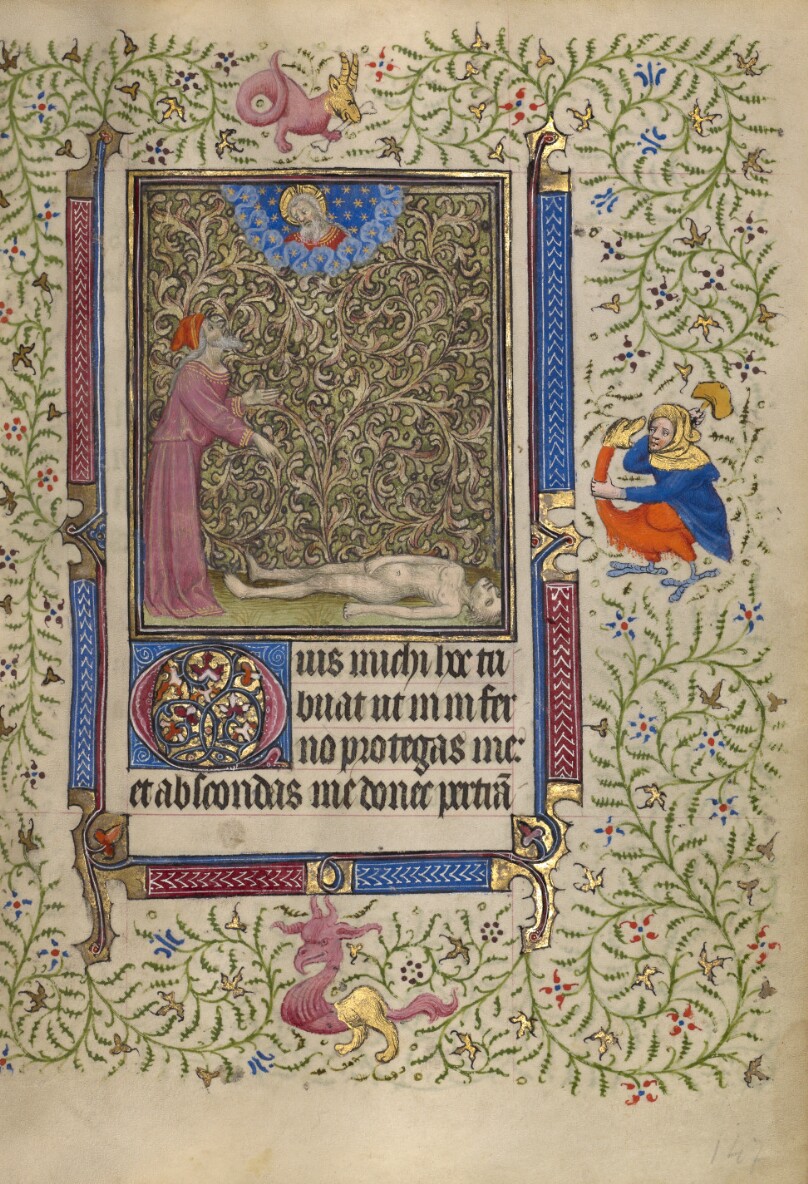 Quis michi hoc tri
buat ut in infer
no protegas me:
et abscondas me donec pertrã
147